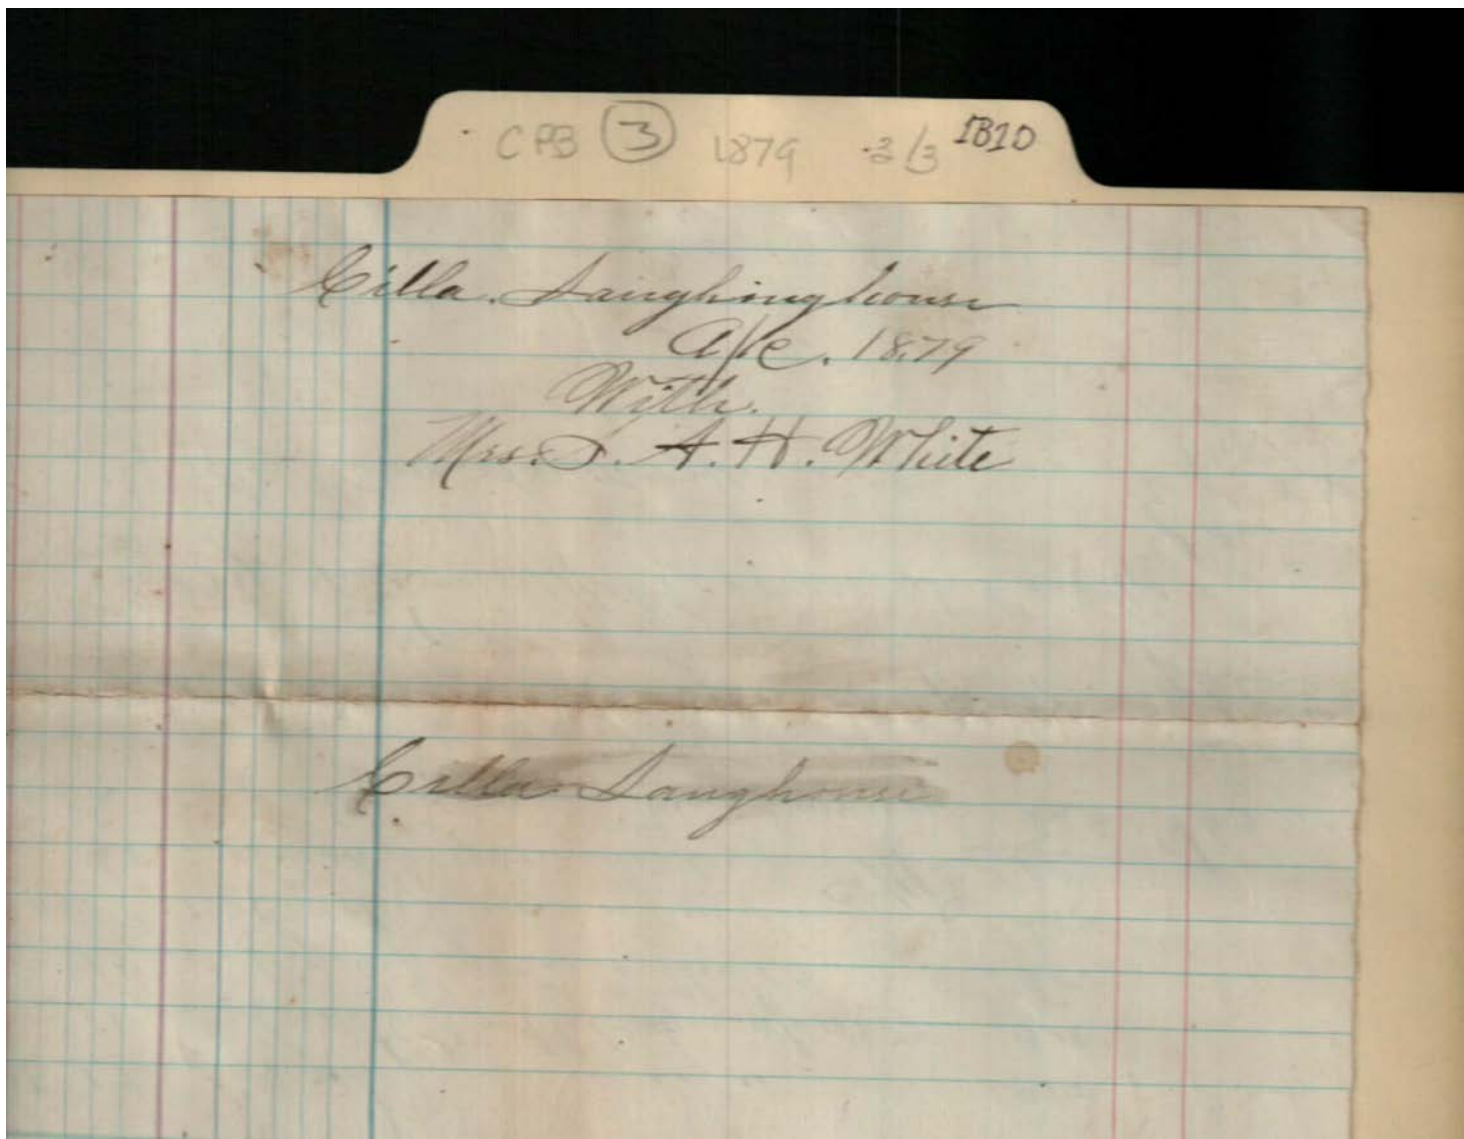 CPB 3 1879 2/3 IB1D
Cilla. Laughinghouse
a/c. 1879
With.
Mrs. S. A. H. White
Cilla Laughouse